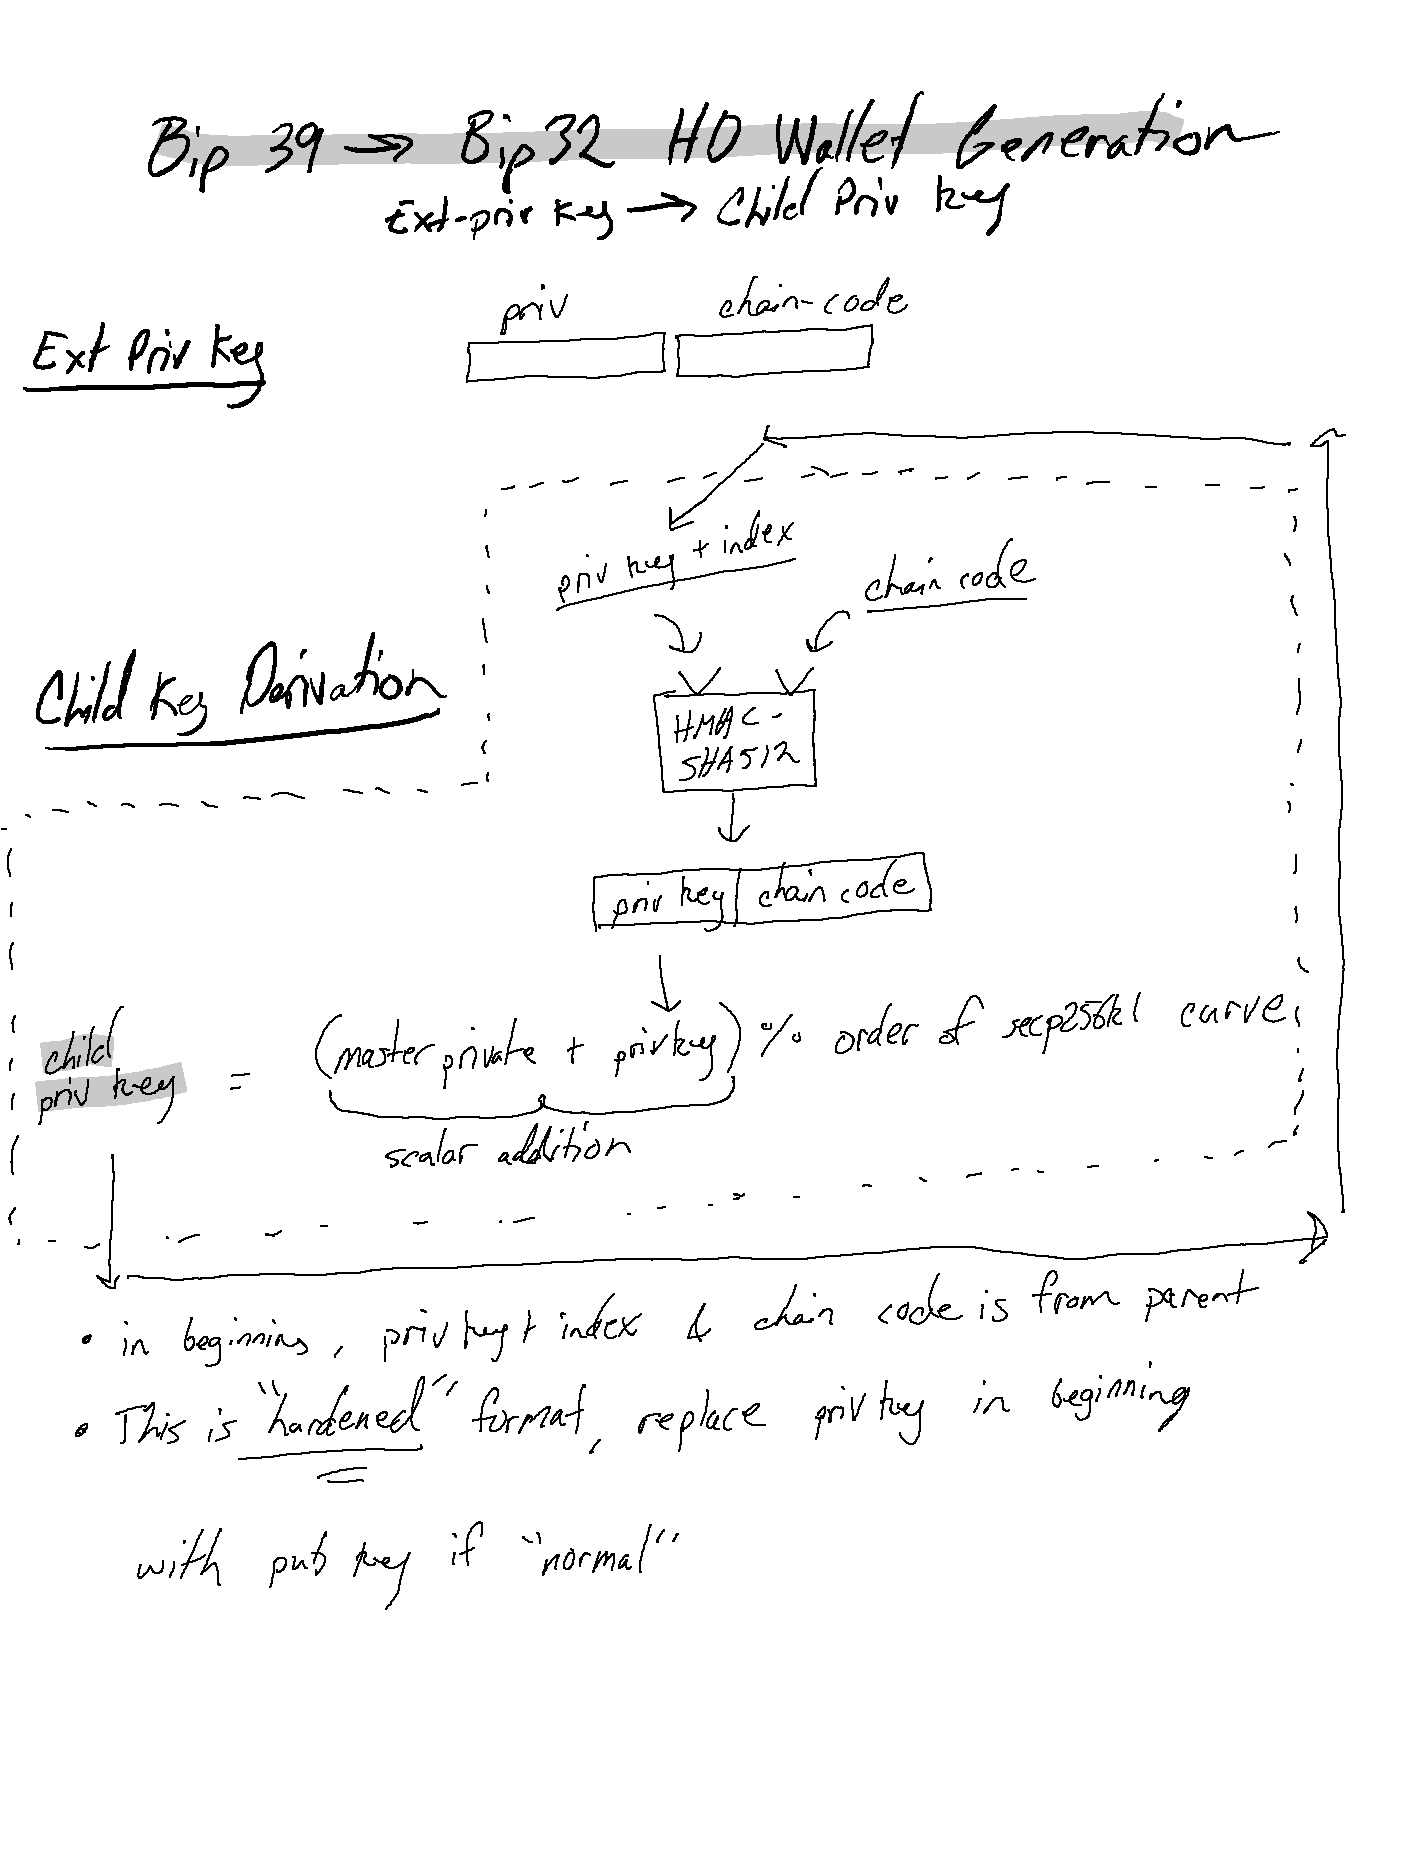 Bip 39 → Bip32 HD Wallet Generation
Ext-priv key → Child Priv key
priv chain-code
Ext Priv Key
priv key + index
chain code
Child Key Derivation
HMAC-
SHA512
priv key chain code
child
priv key = (master private + privkey) % order of secp256k1 curve
scalar addition
• in beginning, priv key + index & chain code is from parent
• This is "hardened" format, replace priv key in beginning
with pub key if "normal"